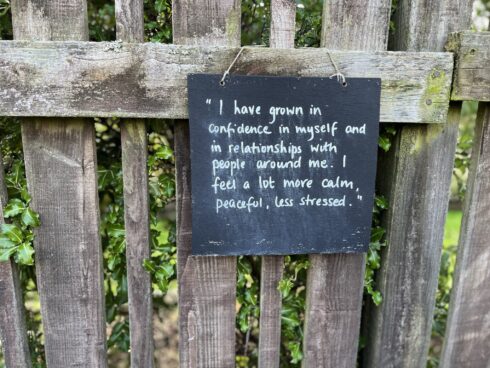 " I have grown in
confidence in myself and
in relationships with
people around me. I
feel a lot more calm,
peaceful, less stressed. "